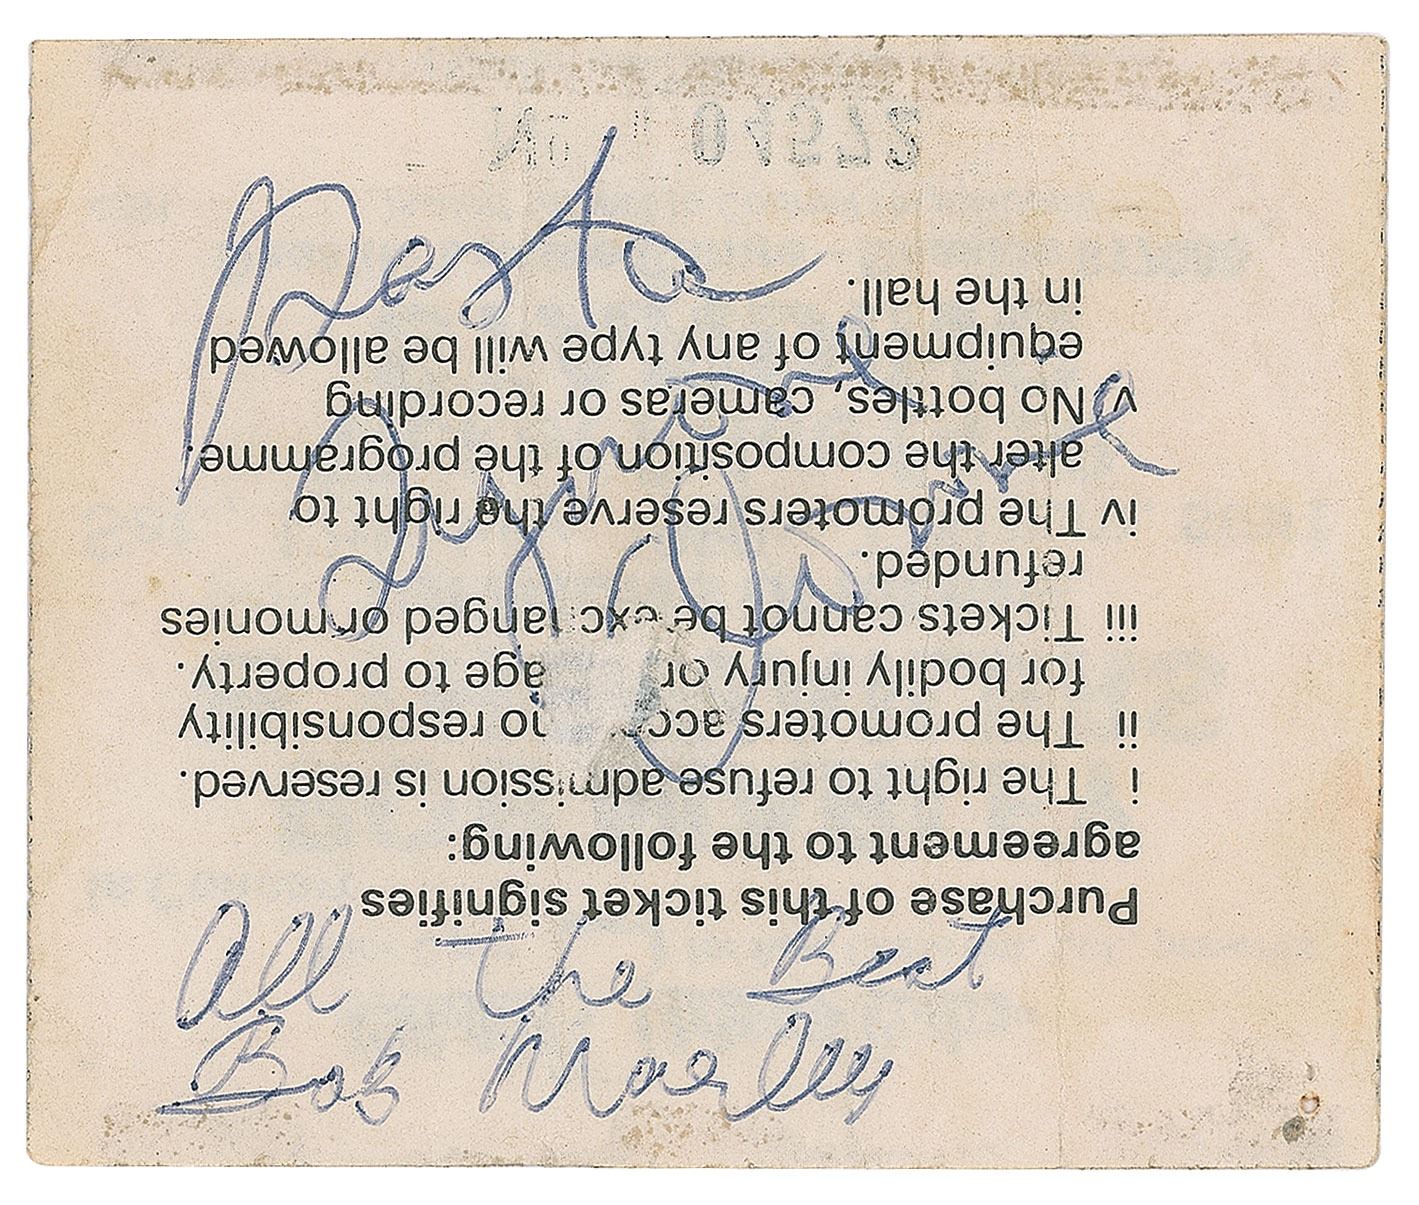 Rasta
Purchase of this ticket signifies
agreement to the following:
i The right to refuse admission is reserved.
ii The promoters acc no responsibility
for bodily injury or age to property.
iii Tickets cannot be exchanged or monies
refunded.
iv The promoters reserve the right to
alter the composition of the programme.
v No bottles, cameras or recording
equipment of any type will be allowed
in the hall.
All the Best
Bob Marley